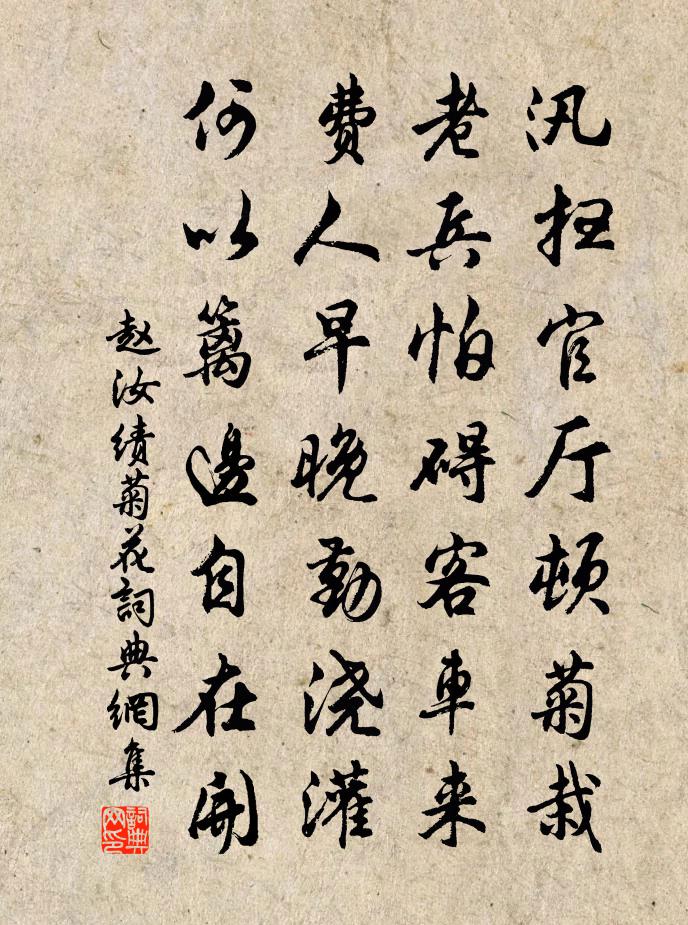 汎扫官厅顿菊栽
老兵怕碍客車来
费人早晚勤浇灌
何以篱邊自在開
赵汝绩菊花詞典網集
詞典网印